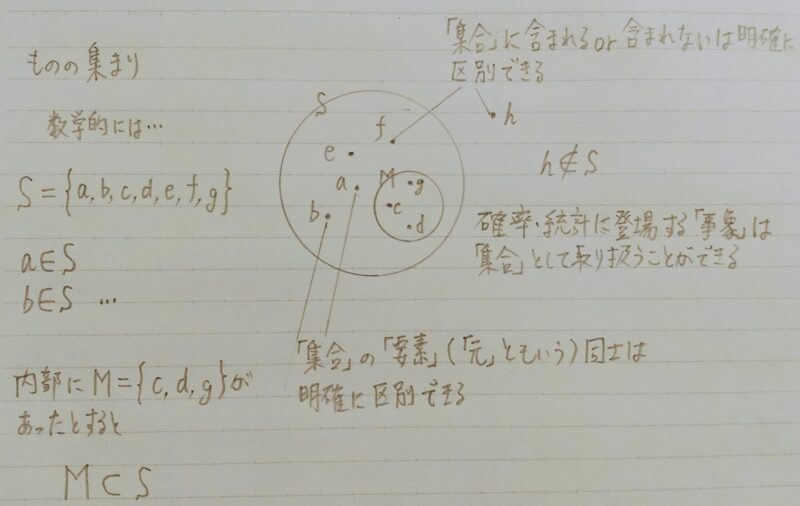 ものの集まり
数学的には…
S={a,b,c,d,e,f,g}
a∈S
b∈S …
内部に M={c,d,g}が
あったとすると
M⊂S
「集合」に含まれるor含まれないは明確に
区別できる
S
f
e
a
M
g
b
c
d
h
h∉S
確率・統計に登場する「事象」は
「集合」として取り扱うことができる
「集合」の「要素」(「元」ともいう)同士は
明確に区別できる